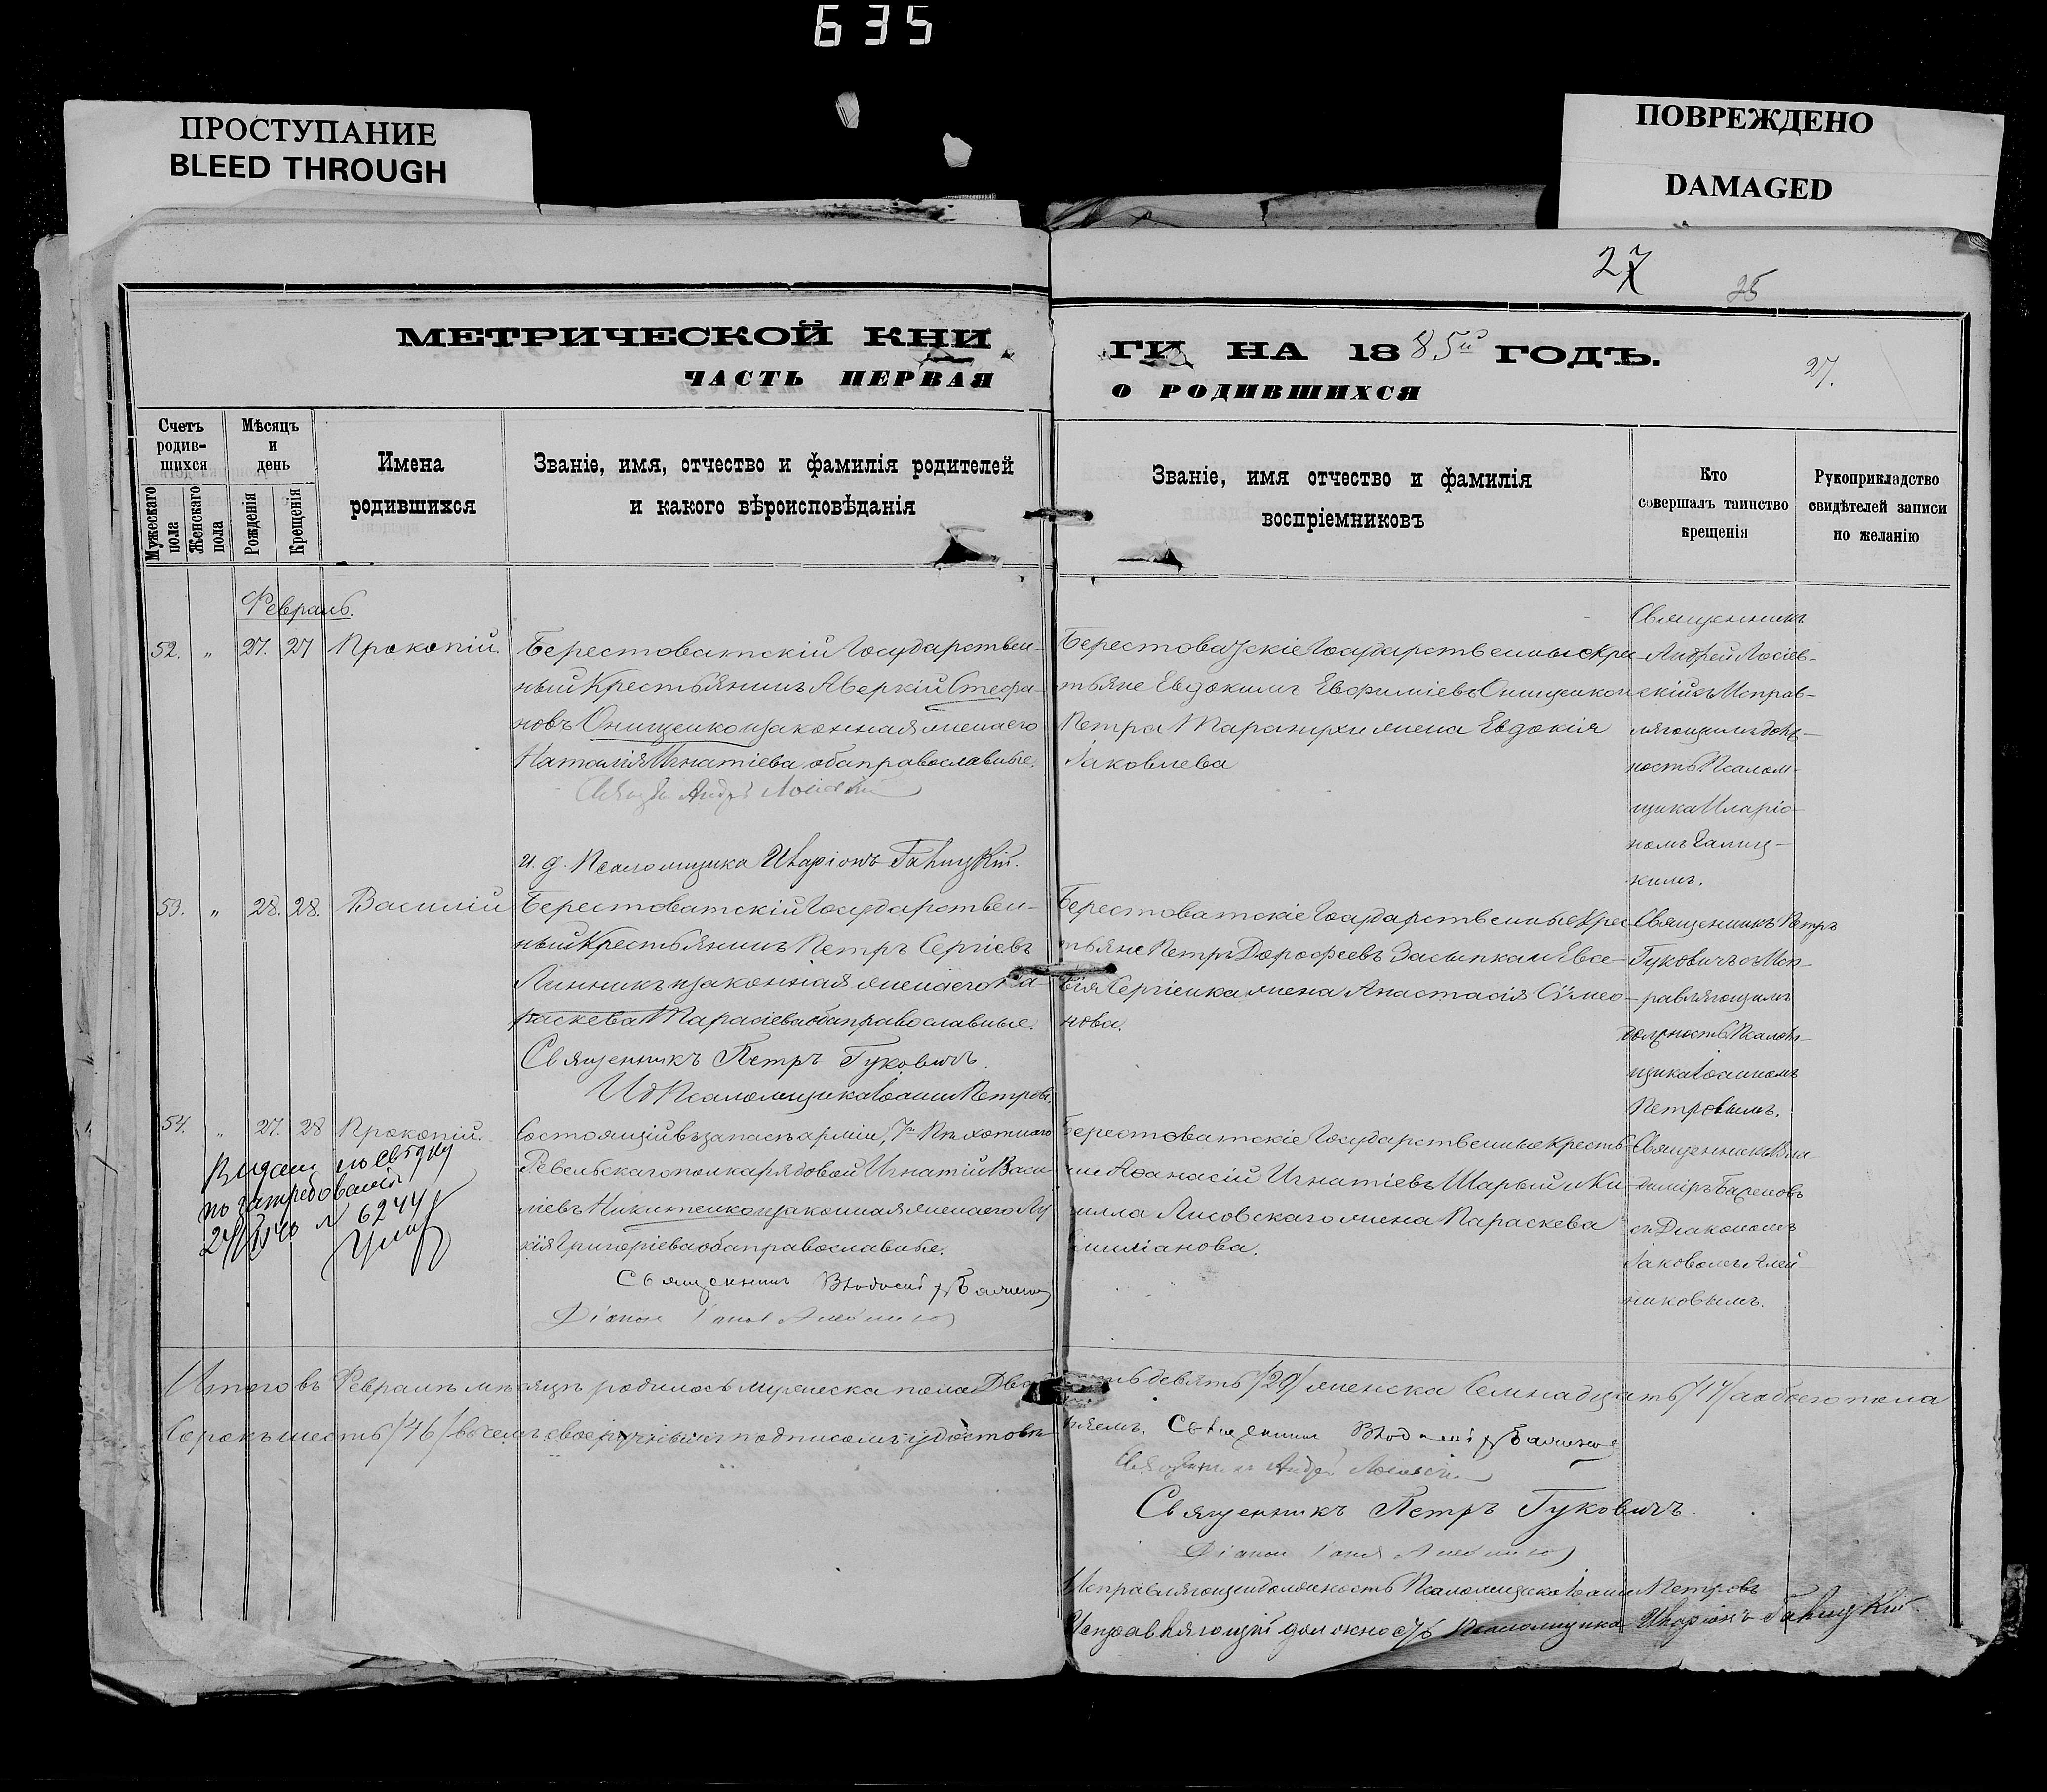 635
ПРОСТУПАНИЕ
BLEED THROUGH
ПОВРЕЖДЕНО
DAMAGED
27
27.
МЕТРИЧЕСКОЙ КНИ
ГИ НА 1885й ГОДЪ.
ЧАСТЬ ПЕРВАЯ
О РОДИВШИХСЯ
Счетъ родив-шихся
Мужескаго пола
Женскаго пола
Мѣсяцъ и день
Рожденія
Крещенія
Имена
родившихся
Званіе, имя, отчество и фамилія родителей
и какого вѣроисповѣданія
Званіе, имя отчество и фамилія
воспріемниковъ
Кто
совершалъ таинство
крещенія
Рукоприкладство
свидѣтелей записи
по желанію
Февраль.
52. " 27. 27 Прокопій.
Берестоватскій Государствен-
ный Крестьянинъ Аверкій Стефа-
новъ Онищенко и законная жена его
Наталія Игнатіева, оба православные.
и. д. Псаломщика Иларіонъ Галицкій.
Берестоватскіе Государственные Крес-
тьяне Евдокимъ Евфиміевъ Онищенко и
Петра Таратухи жена Евдокія
Іаковлева
Священникъ
Андрей Лосіев-
скій съ Исправ-
ляющимъ долж-
ность Псалом-
щика Иларіо-
номъ Галиц-
кимъ.
53. " 28. 28. Василій
Берестоватскій Государствен-
ный Крестьянинъ Петръ Сергіевъ
Линникъ и законная жена его Па-
раскева Тарасіева оба православные.
Священникъ Петръ Гуковичъ.
ИД Псаломщика Іоаннъ Петровъ.
Берестоватскіе Государственные Крес
тьяне Петръ Дорофеевъ Засыпка и Евсе-
вія Сергіенка жена Анастасія Сѵмео-
нова.
Священникъ Петръ
Гуковичъ съ Исп-
равляющимъ
должность Псалом-
щика Іоанномъ
Петровымъ.
54. " 27. 28 Прокопій.
по затребованію
№ 6244
Состоящій въ запасѣ арміи, 7го Пѣхотнаго
Ревельскаго полка рядовой Игнатій Васи
ліевъ Никитенко и законная жена его Лу
кія Григоріева оба православные.
Священникъ
Берестоватскіе Государственные Кресть
яне Афанасій Игнатіевъ Шарый и Ки
рилла Лисовскаго жена Параскева
Емиліанова.
Священникъ Вла-
диміръ Баженовъ
съ Діакономъ
Іаковомъ Алей-
никовымъ.
Итого въ Февралѣ мѣсяцѣ родилось мужеска пола Два
дцать девять /29/ женска Семнадцать /17/ а обоего пола
Сорокъ шесть /46/ въ чемъ своеручнымъ подписомъ удостовѣ
ряемъ. Священникъ
Священникъ Петръ Гуковичъ.
Исправляющій должность Псаломщика Іоаннъ Петровъ
Исправляющій должность Псаломщика Иларіонъ Галицкій.